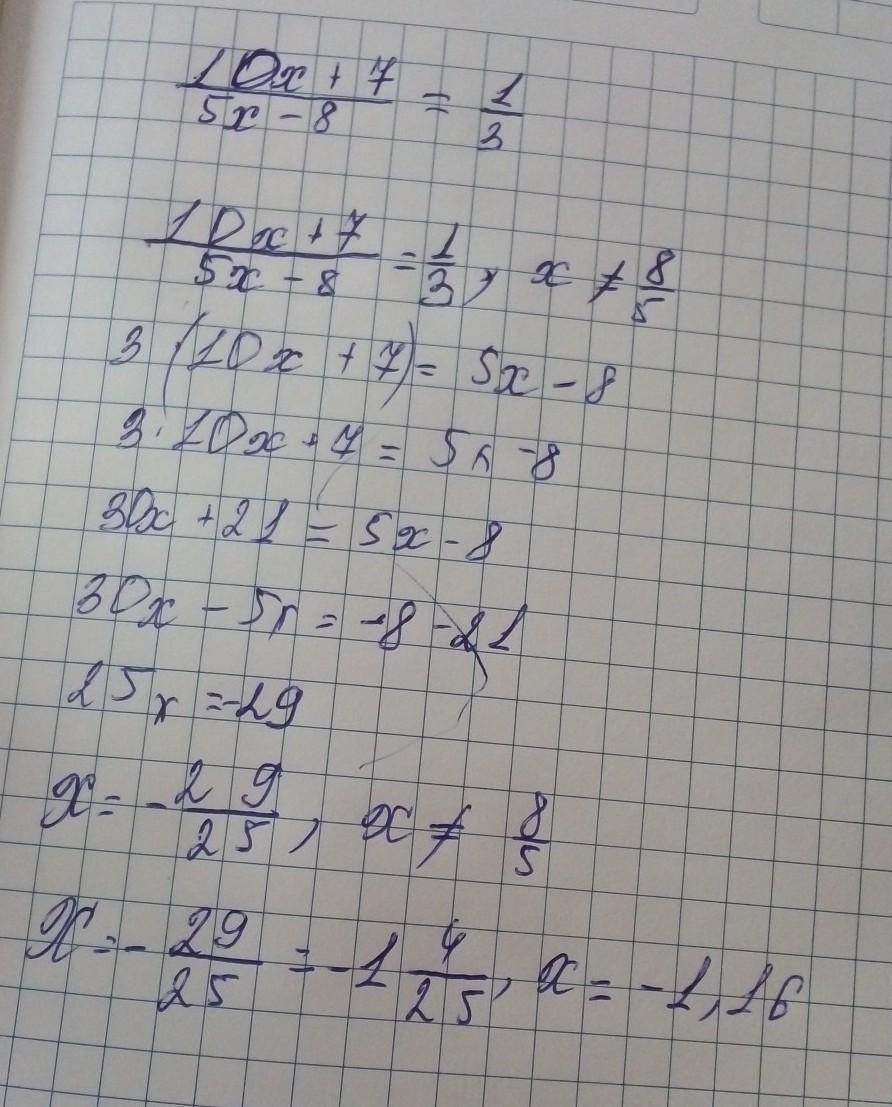 (10x + 7)/(5x - 8) = 1/3
(10x + 7)/(5x - 8) = 1/3, x ≠ 8/5
3 (10x + 7) = 5x - 8
3 · 10x + 7 = 5x - 8
30x + 21 = 5x - 8
30x - 5x = -8 - 21
25x = -29
x = - 29/25, x ≠ 8/5
x = - 29/25 = -1 4/25, x = -1,16